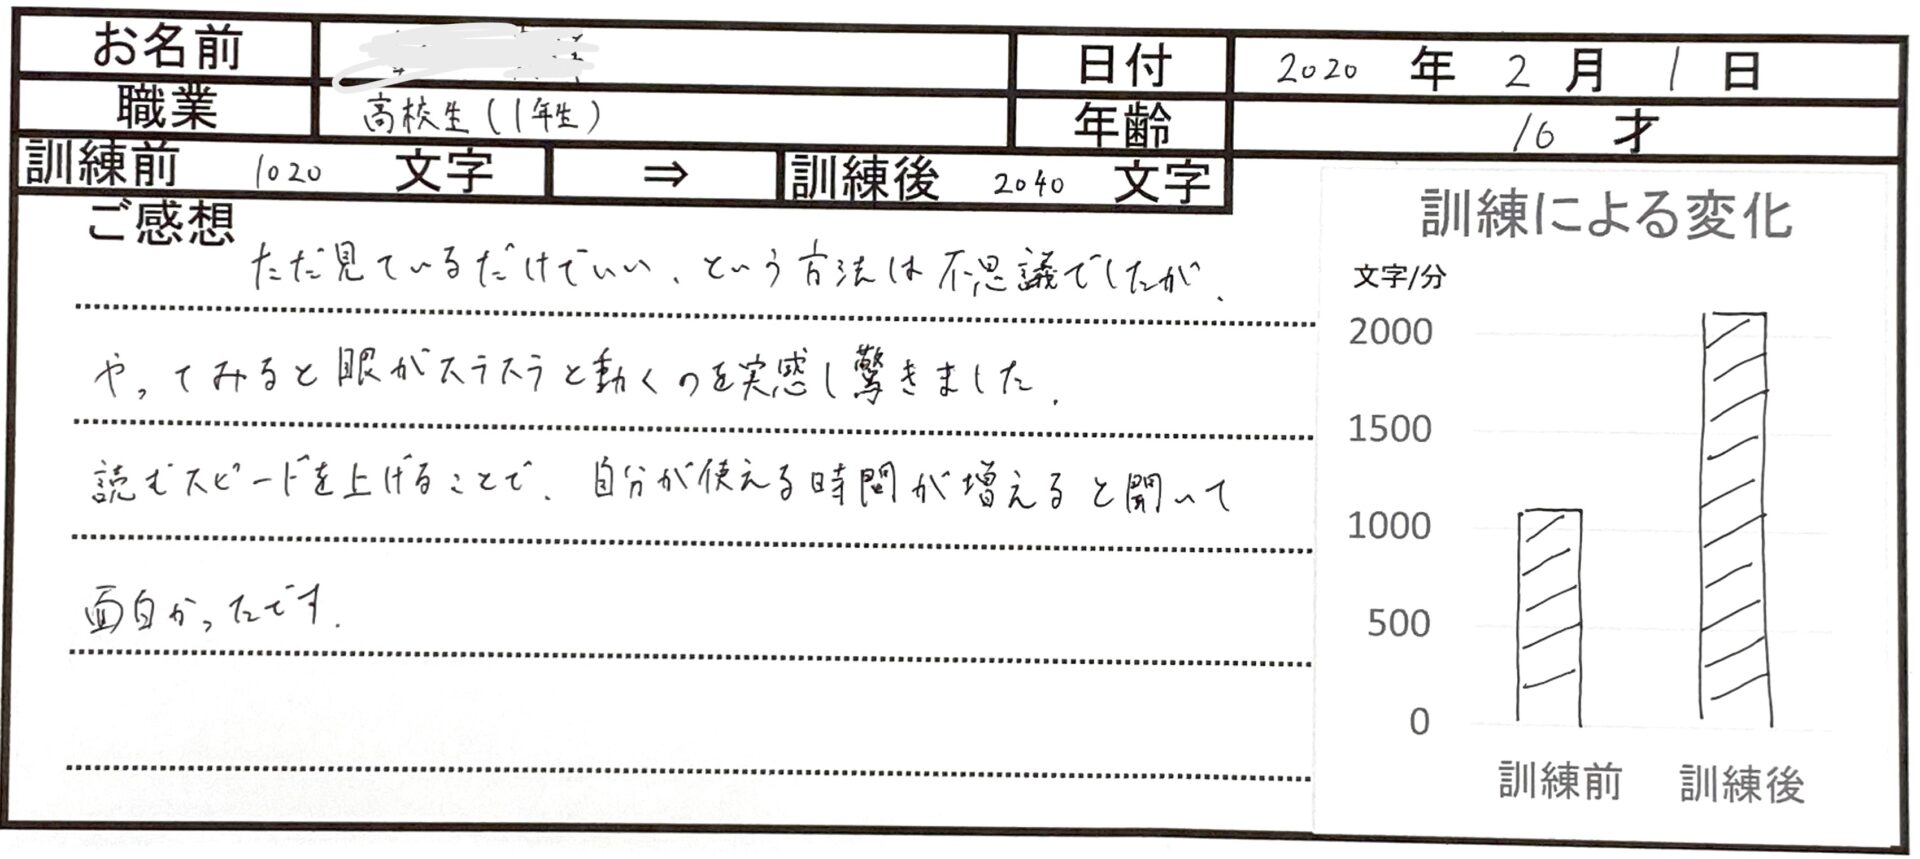 お名前
日付 2020 年 2 月 1 日
職業 高校生(1年生)
年齢 16 才
訓練前 1020 文字 ⇒ 訓練後 2040 文字
ご感想
ただ見ているだけでいい、という方法は不思議でしたが、
やってみると眼がスラスラと動くのを実感し驚きました.
読むスピードを上げることで、自分が使える時間が増えると聞いて
面白かったです.
訓練による変化
文字/分
2000
1500
1000
500
0
訓練前 訓練後